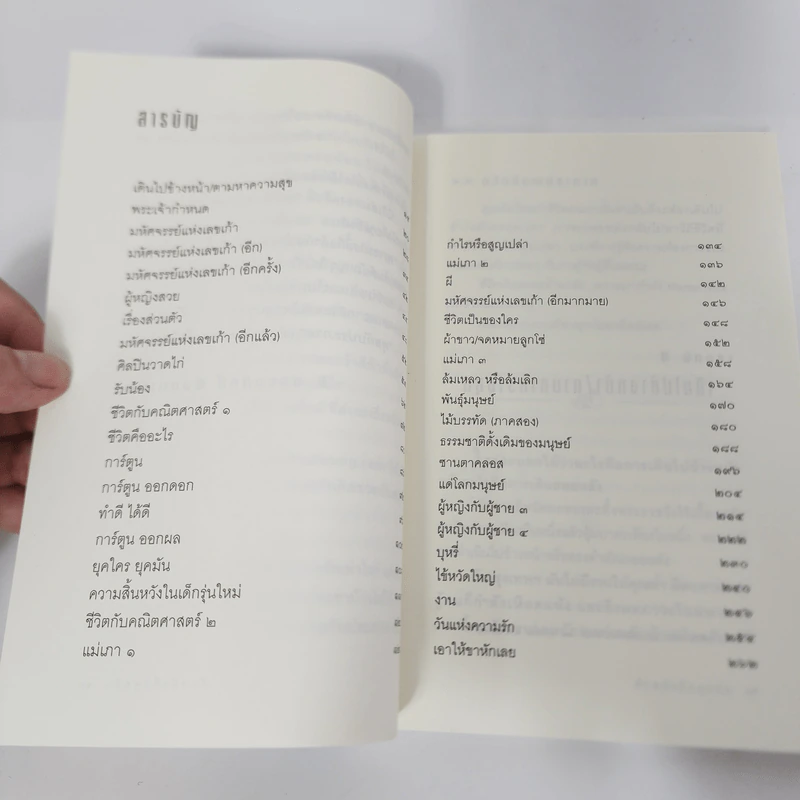 สารบัญ
เดินไปข้างหน้า/ตามหาความสุข
พระเจ้ากำหนด
มหัศจรรย์แห่งเลขเก้า
มหัศจรรย์แห่งเลขเก้า (อีก)
มหัศจรรย์แห่งเลขเก้า (อีกครั้ง)
ผู้หญิงสวย
เรื่องส่วนตัว
มหัศจรรย์แห่งเลขเก้า (อีกแล้ว)
ศิลปินวาดไก่
รับน้อง
ชีวิตกับคณิตศาสตร์ ๑
ชีวิตคืออะไร
การ์ตูน
การ์ตูน ออกดอก
ทำดี ได้ดี
การ์ตูน ออกผล
ยุคใคร ยุคมัน
ความสิ้นหวังในเด็กรุ่นใหม่
ชีวิตกับคณิตศาสตร์ ๒
แม่เภา ๑
กำไรหรือสูญเปล่า ๑๓๔
แม่เภา ๒ ๑๓๖
ผี ๑๔๒
มหัศจรรย์แห่งเลขเก้า (อีกมากมาย) ๑๔๖
ชีวิตเป็นของใคร ๑๔๘
ผ้าขาว/จดหมายลูกโซ่ ๑๕๒
แม่เภา ๓ ๑๕๘
ล้มเหลว หรือล้มเลิก ๑๖๔
พันธุ์มนุษย์ ๑๗๐
ไม้บรรทัด (ภาคสอง) ๑๘๐
ธรรมชาติดั้งเดิมของมนุษย์ ๑๘๘
ซานตาคลอส ๑๙๖
แด่โลกมนุษย์ ๒๐๔
ผู้หญิงกับผู้ชาย ๓ ๒๑๔
ผู้หญิงกับผู้ชาย ๔ ๒๒๒
บุหรี่ ๒๓๐
ไข้หวัดใหญ่ ๒๔๐
งาน ๒๔๖
วันแห่งความรัก ๒๕๔
เอาให้ขาหักเลย ๒๖๒